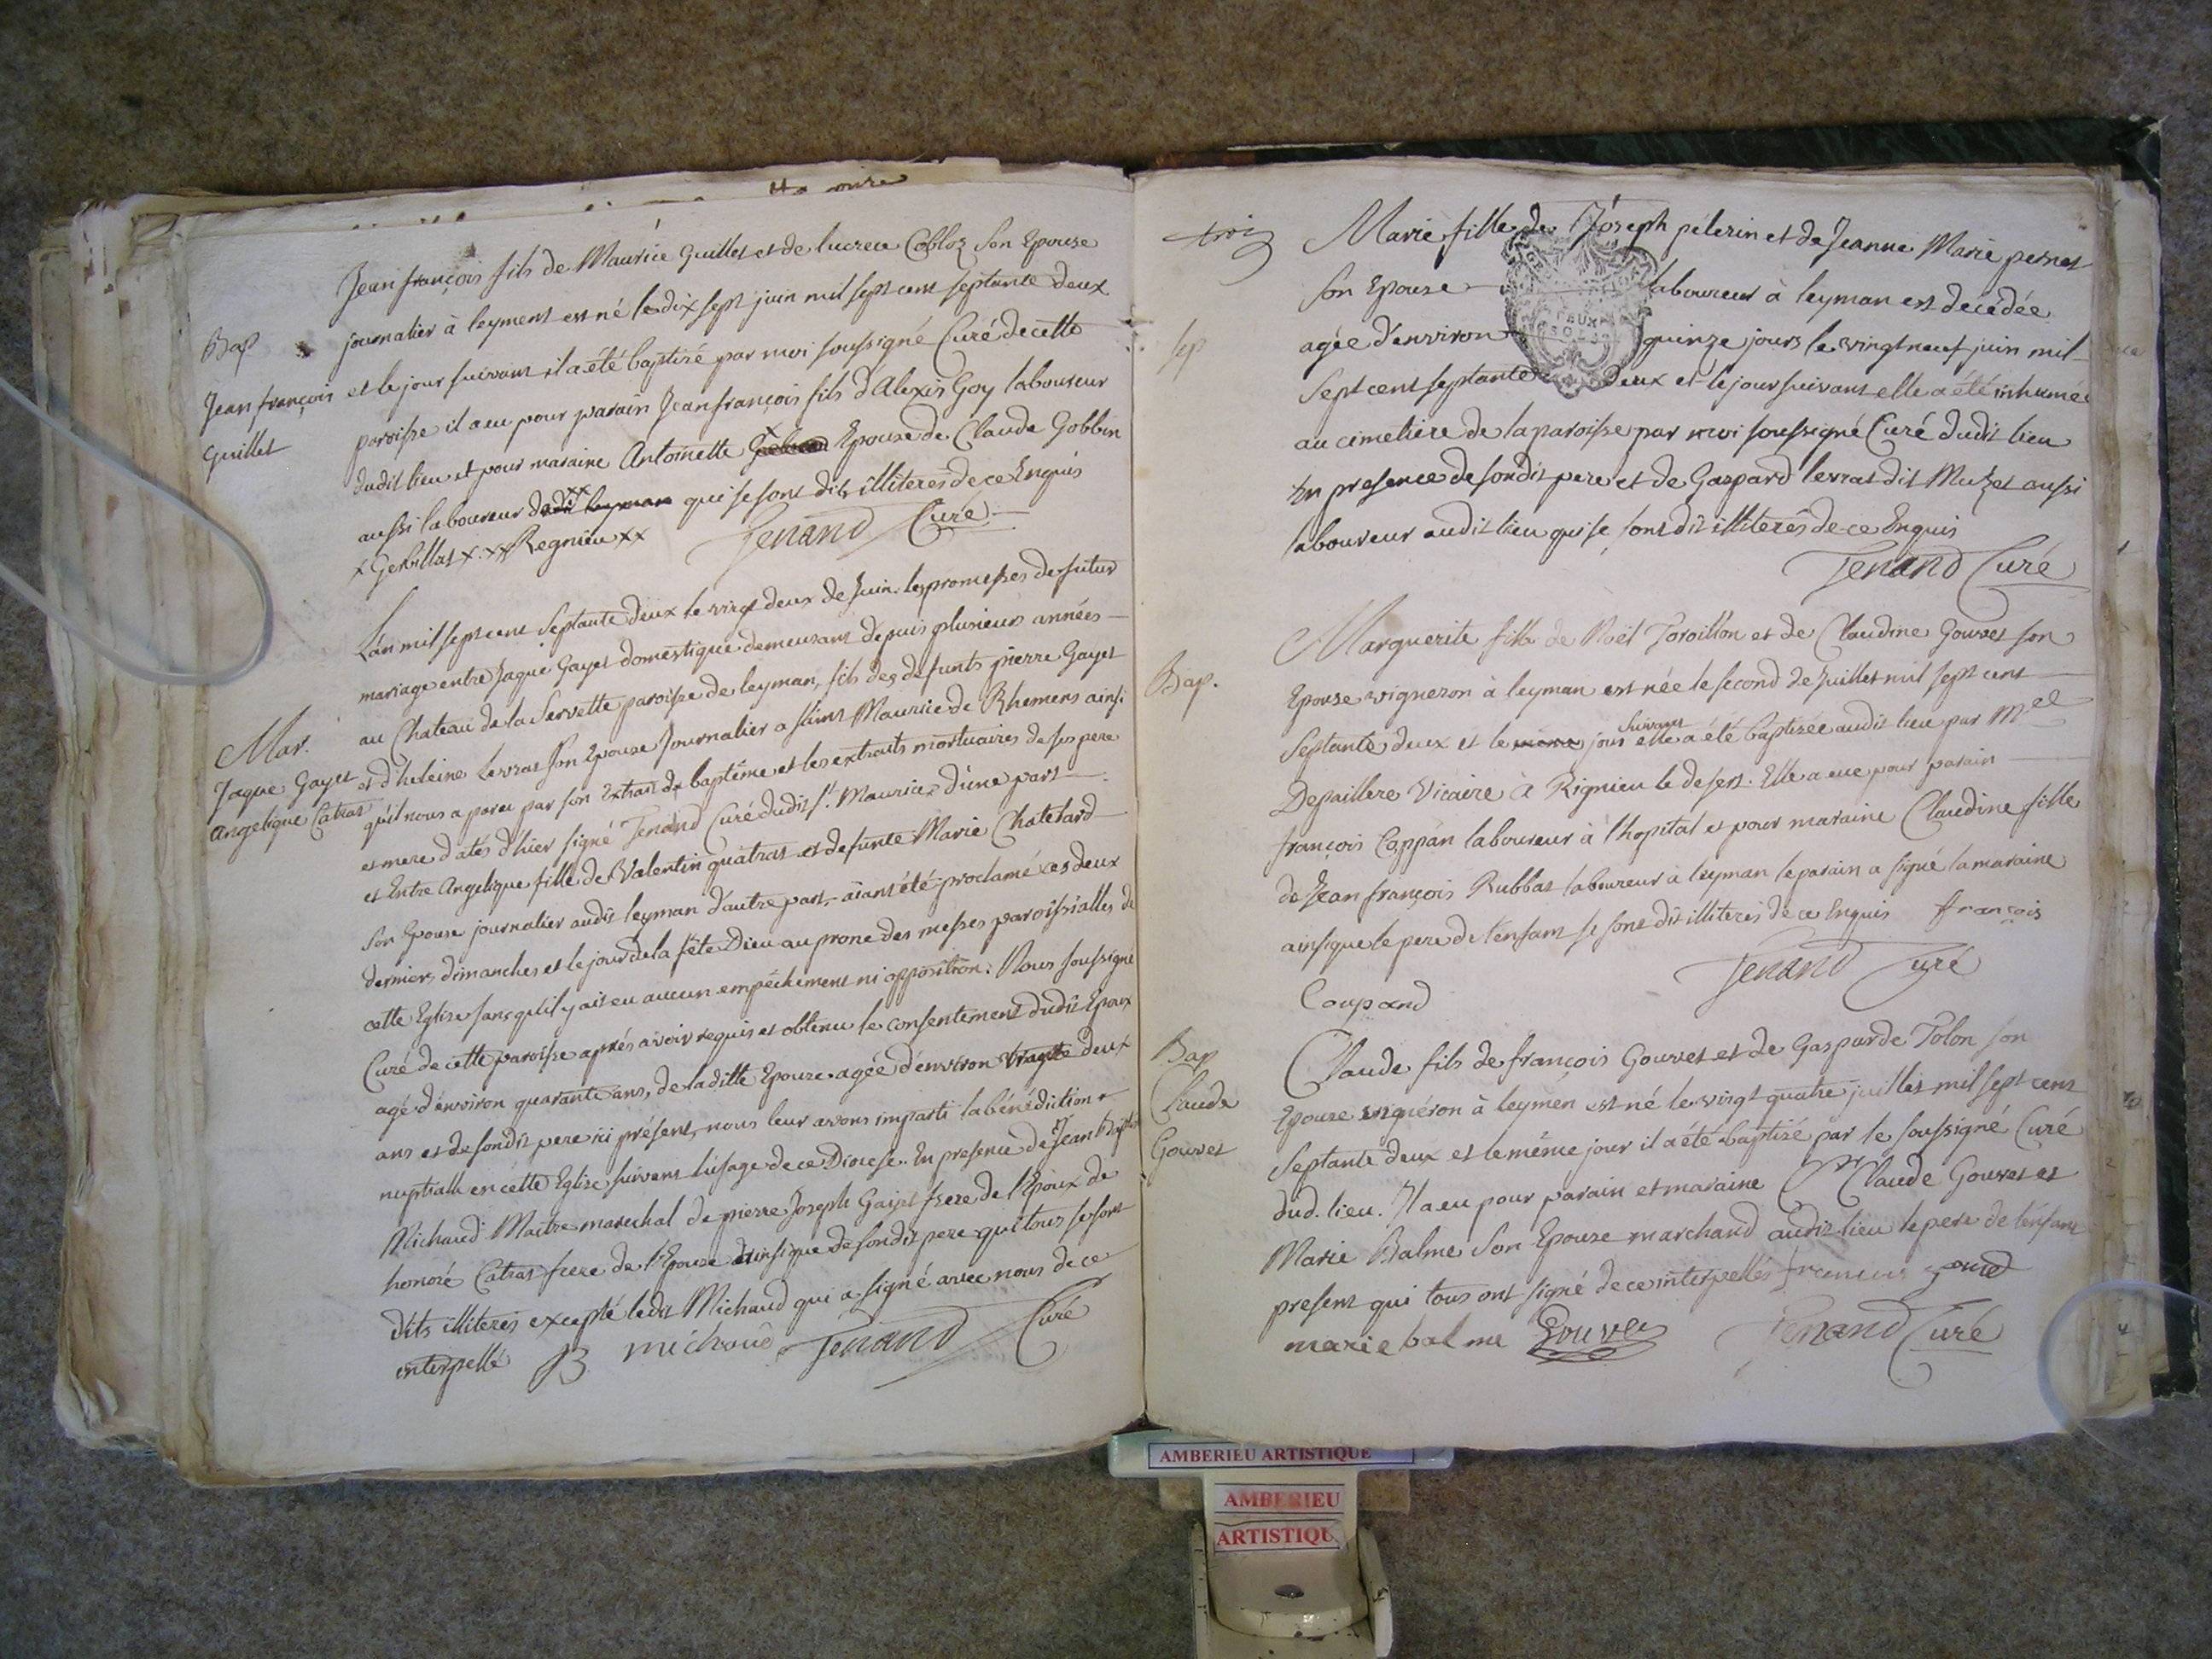 Jean françois fils de Maurice Guillet et de lucrece Cobloz son Epouse
Bap
journalier à leyment est né le dix sept juin mil sept cent septante deux
Jean françois
et le jour suivant il a été baptisé par moi soussigné Curé de cette
Guillet
paroisse il a eu pour parain Jean françois fils d'Alexis Goy laboureur
dudit lieu et pour maraine Antoinette x Epouse de Claude Gobbin
aussi laboureur dudit leyman xx qui se sont dits illiteres de ce Enquis
x Gerbillat x. xx Regnieu xx Tenand Curé
L'an mil sept cent septante deux le vingt deux de juin. les promesses de futur
mariage entre Jaque Gayet domestique demeurant depuis plusieurs années
au Chateau de la Servette paroisse de leyman, fils des defunts pierre Gayet
Mar.
Jaque Gayet
Angelique Catras
et d'heleine Levrat son Epouse Journalier a saint Maurice de Rhemens ainsi
qu'il nous a paru par son Extrait de baptême et les extraits mortuaires de ses pere
et mere datés d'hier signé Tenand Curé dudit St. Maurice d'une part
et Entre Angelique fille de Valentin quatras et defunte Marie Chatelard
son Epouse journalier audit leyman d'autre part, aiant été proclamé ces deux
derniers dimanches et le jour de la fête Dieu au prone des messes paroissialles de
cette Eglise sans qu'il y ait eu aucun empêchement ni opposition. Nous soussigné
Curé de cette paroisse après avoir requis et obtenu le consentement dudit Epoux
agé d'environ quarante ans, de laditte Epouse agée d'environ trente deux
ans et de sondit pere ici présent, nous leur avons imparti la bénédiction
nuptialle en cette Eglise suivant l'usage de ce Diocese. En presence de Jean Bapte
Michaud Maitre marechal de pierre Joseph Gaiet frere de l'Epoux de
honoré Catras frere de l'Epouse ainsi que de sondit pere qui tous se sont
dits illiteres excepté ledit Michaud qui a signé avec nous de ce
interpellé JB michaud Tenand Curé
trois
Marie fille de Joseph pélerin et de Jeanne Marie pernet
son Epouse laboureur à leyman est decédée
sep
agée d'environ quinze jours le vingt neuf juin mil
sept cent septante deux et le jour suivant elle a été inhumée
au cimetiere de la paroisse par moi soussigné Curé dudit lieu
En presence de sondit pere et de Gaspard levrat dit Muzet aussi
laboureur audit lieu qui se sont dit illiterés de ce Enquis
Tenand Curé
Marguerite fille de Noël Toroillon et de Claudine Gouvet son
Bap.
Epouse vigneron à leyman est née le second de juillet mil sept cent
septante deux et le même jour suivant elle a été baptisée audit lieu par Mre
Depaillere Vicaire à Rignieu le desert. Elle a eue pour parain
françois Coppan laboureur à l'hopital et pour maraine Claudine fille
de Jean françois Rubbat laboureur à leyman le parain a signé la maraine
ainsi que le pere de l'enfant se sont dit illiterés de ce Enquis françois
Coupand Tenand Curé
Bap
Claude
Gouvet
Claude fils de françois Gouvet et de Gasparde Tolon son
Epouse vigneron à leymen est né le vingt quatre juillet mil sept cent
septante deux et le même jour il a été baptisé par le soussigné Curé
dud. lieu. Il a eu pour parain et maraine Sr Claude Gouvet et
Marie Balme son Epouse marchand audit lieu le pere de l'enfant
present qui tous ont signé de ce interpellés francois gouvet
marie balme Gouvet Tenand Curé
AMBERIEU ARTISTIQUE
AMBERIEU
ARTISTIQU